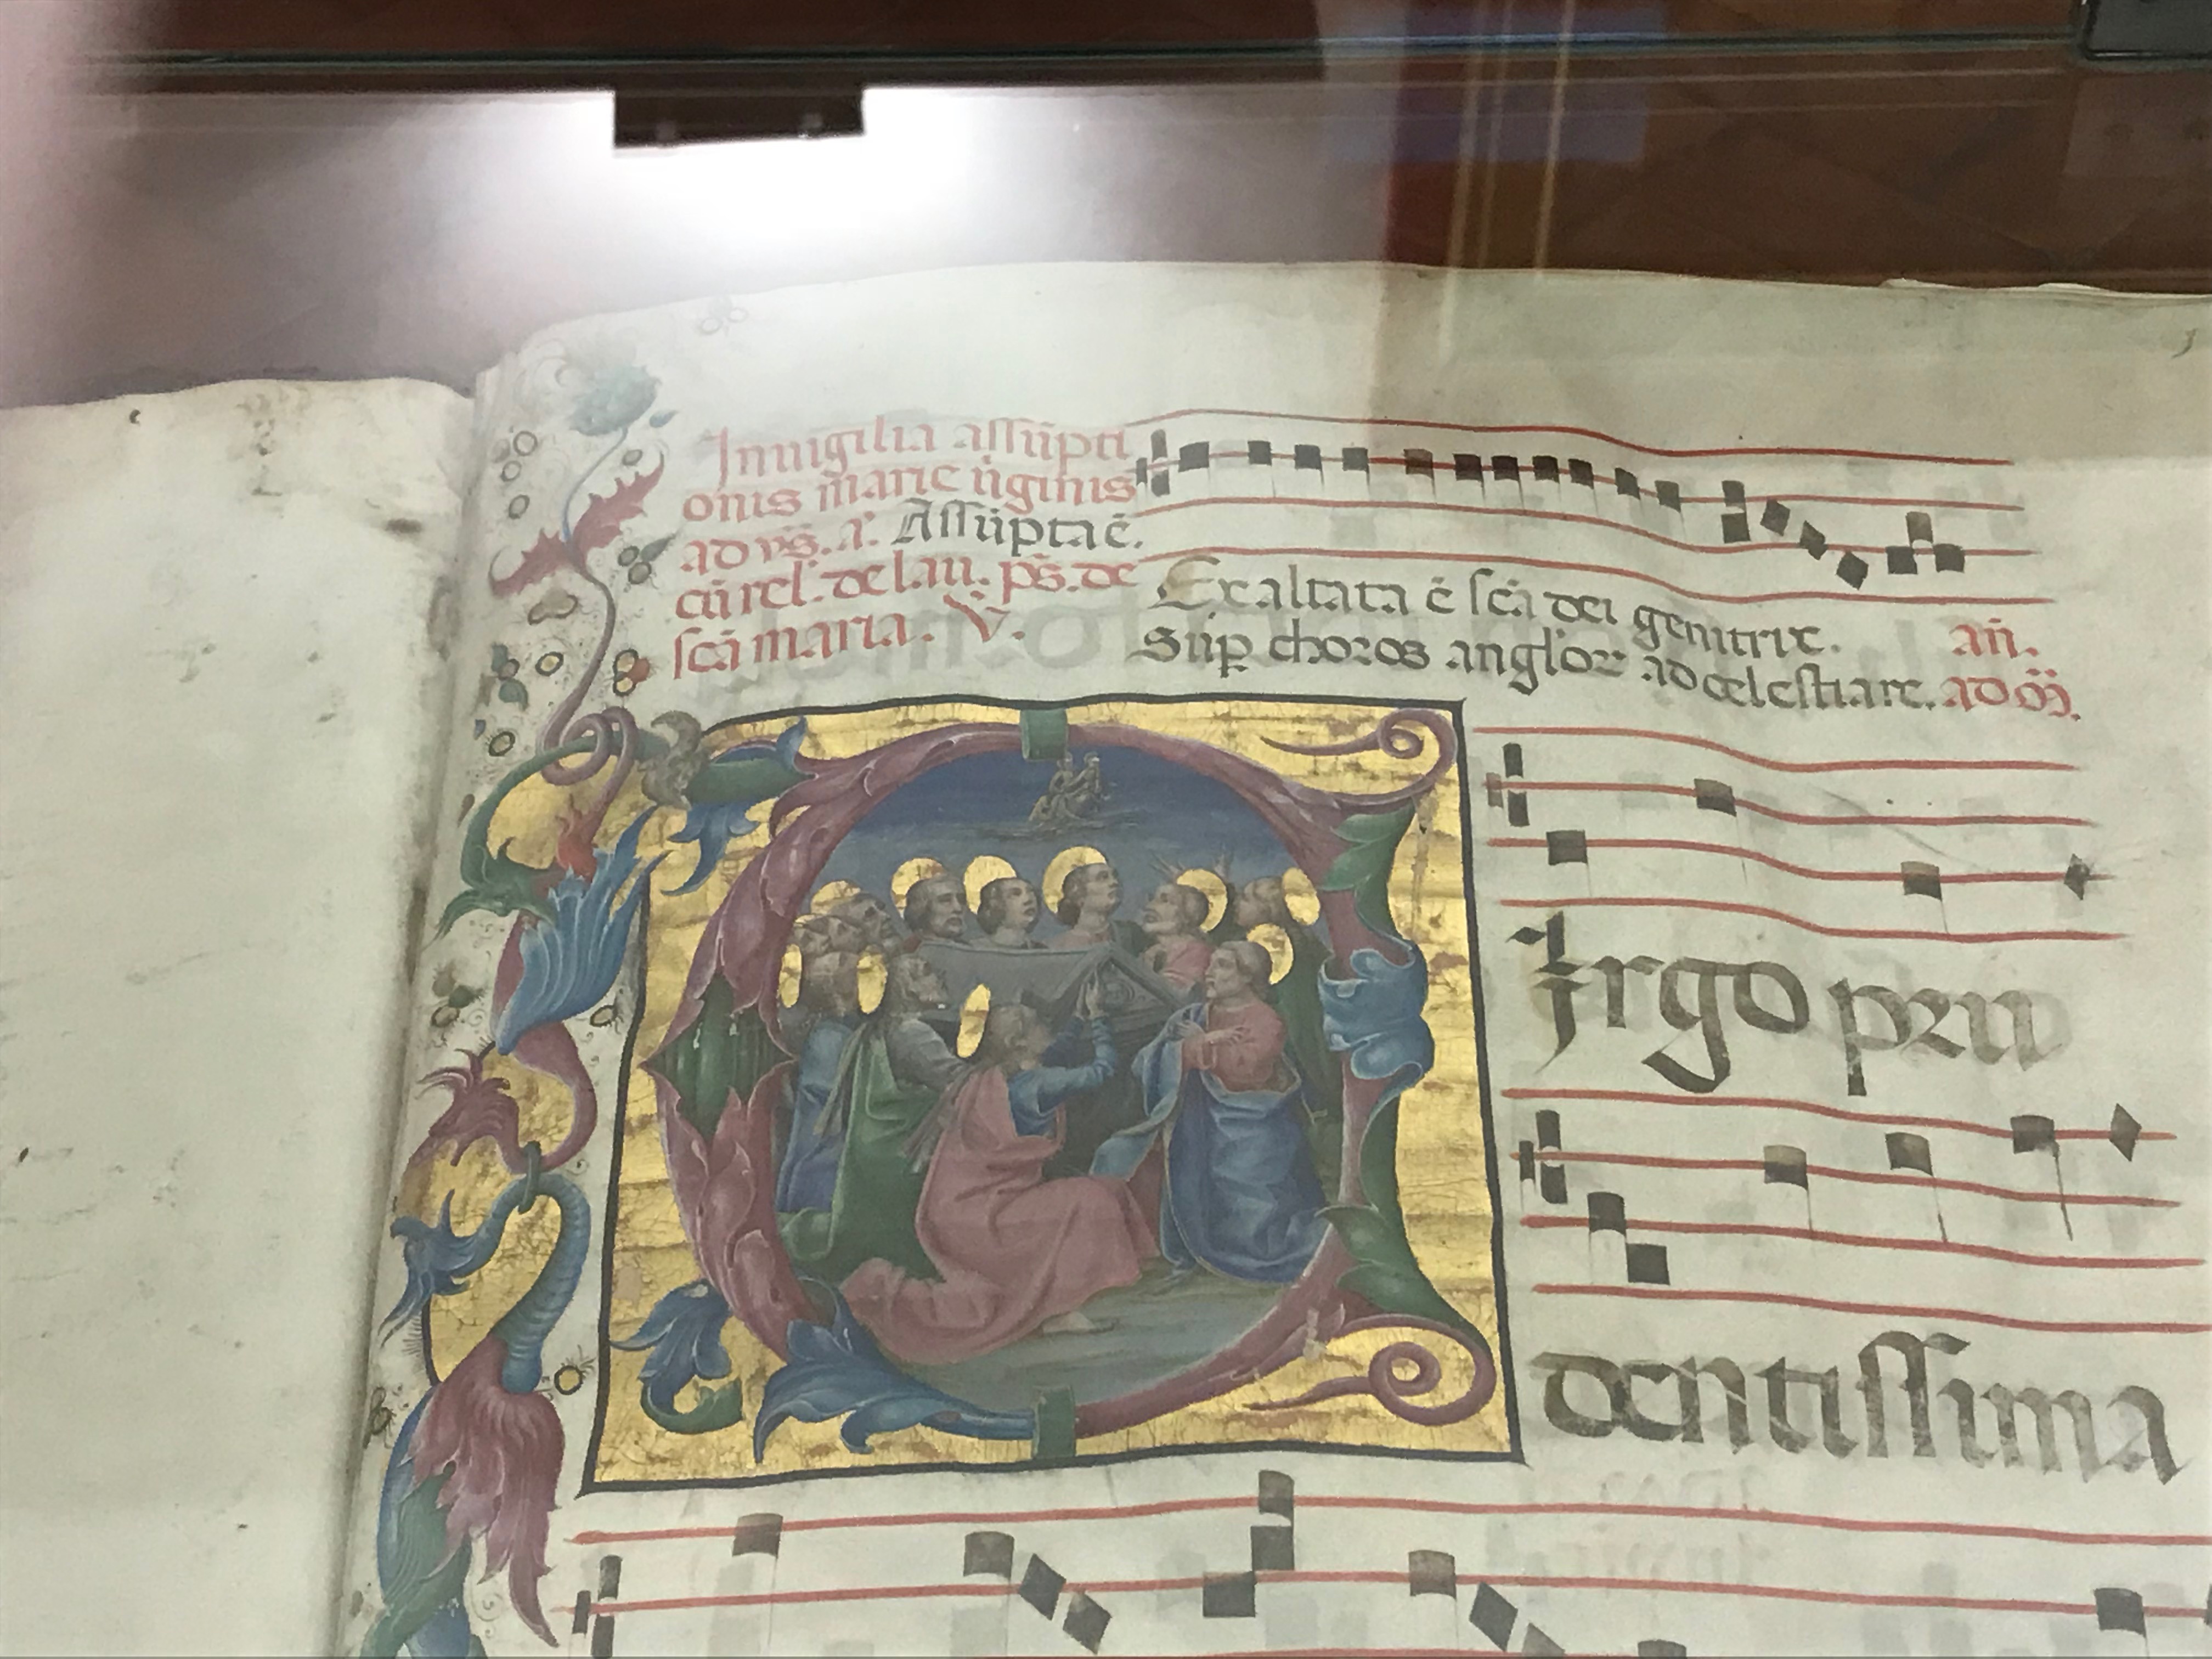 Inuigilia assūpti
onis marie ūginis
ad vs̄. a. Assūpta ē.
cū rel. de lau. ps̄. de
scā maria. V̄.
Exaltata ē scā dei genitrix. an̄.
Sup choros angloꝝ ad celestia re. ad
Irgo pru
dentissima